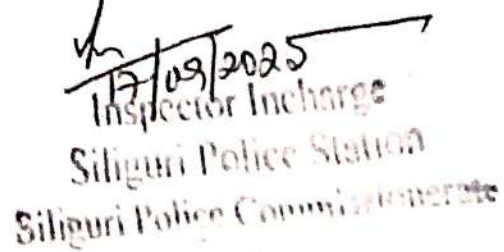 17/09/2025
Inspector Incharge
Siliguri Police Station
Siliguri Police Commissionerate